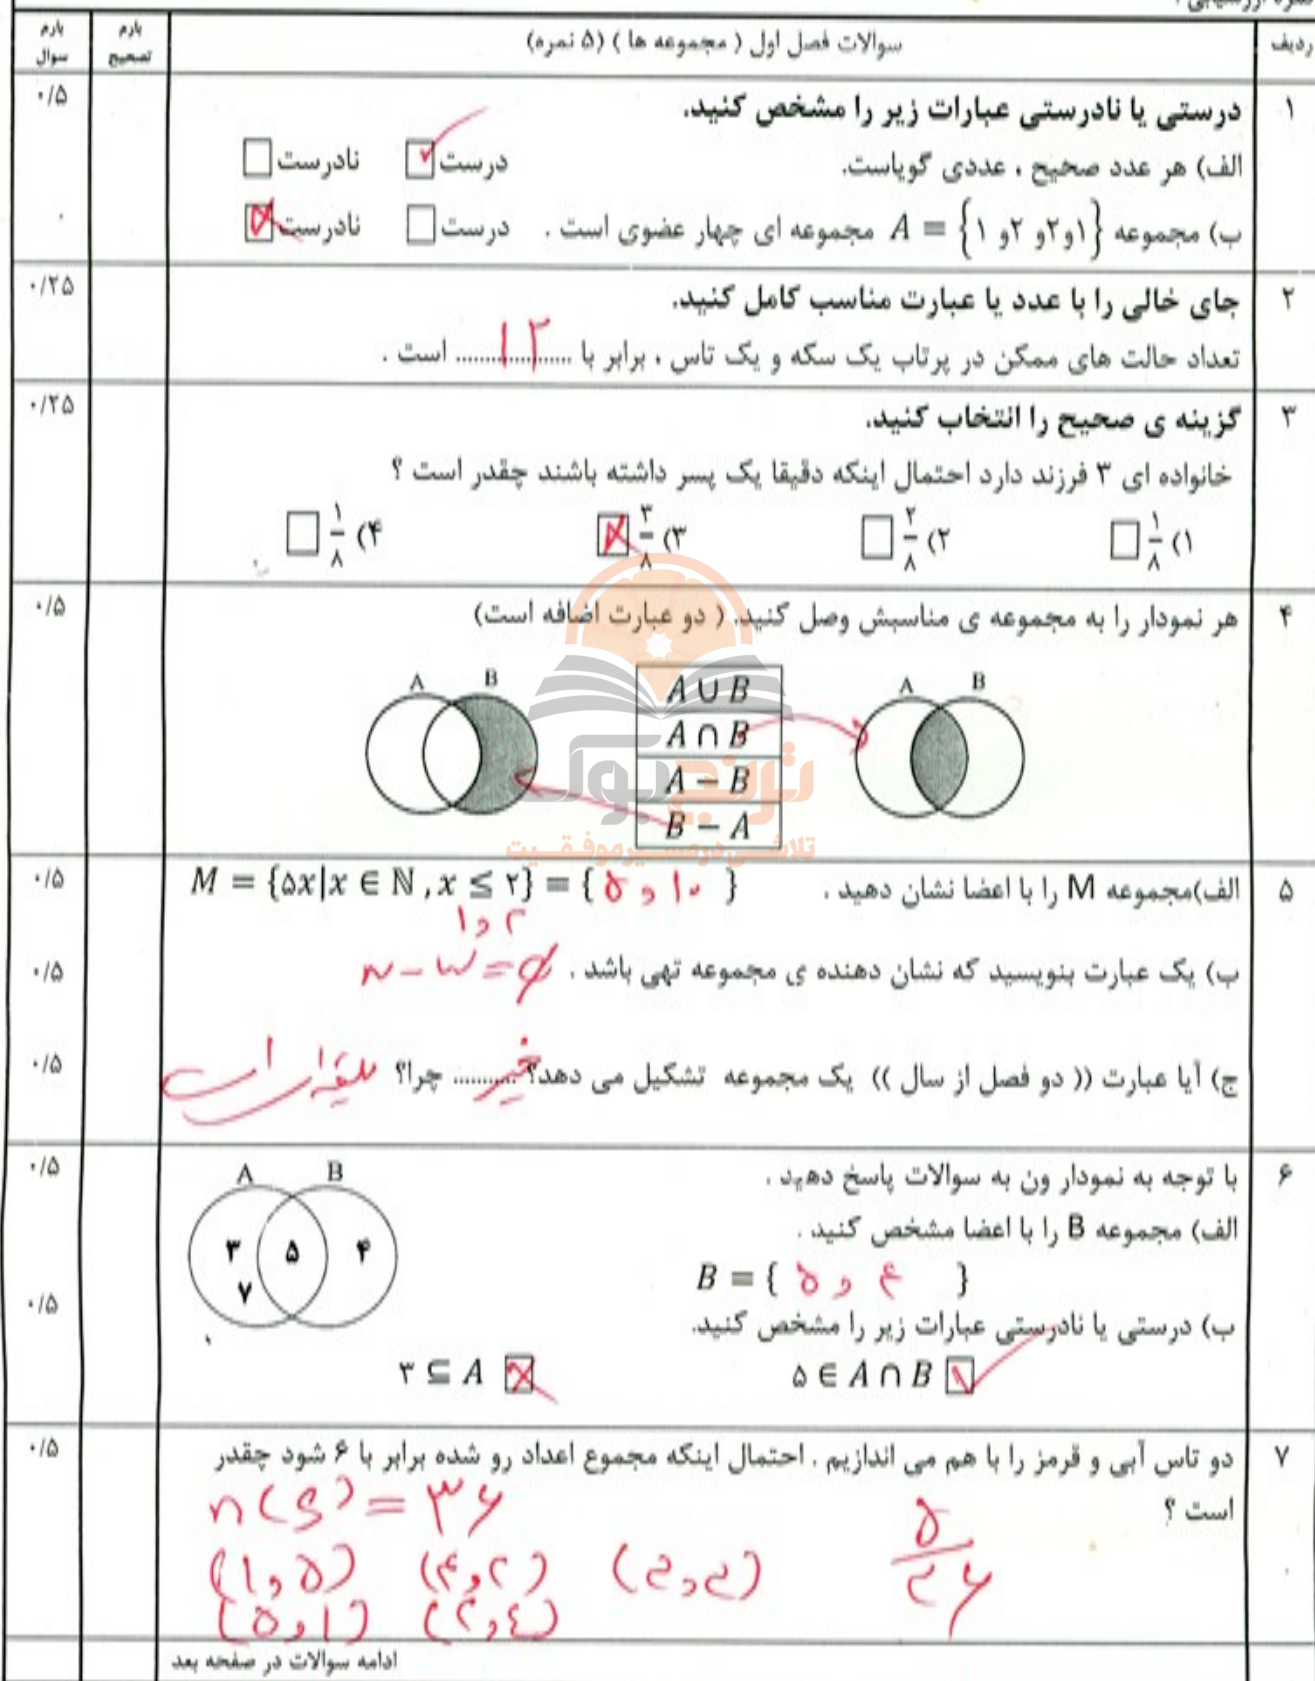 ردیف سوالات فصل اول ( مجموعه ها ) (۵ نمره) بارم تصحیح بارم سوال
۱ درستی یا نادرستی عبارات زیر را مشخص کنید. ۰/۵
الف) هر عدد صحیح ، عددی گویاست. درست ✓ نادرست
ب) مجموعه A = {۱و۲و ۲و ۱} مجموعه ای چهار عضوی است . درست نادرست
۲ جای خالی را با عدد یا عبارت مناسب کامل کنید. ۰/۲۵
تعداد حالت های ممکن در پرتاب یک سکه و یک تاس ، برابر با ...۱۲... است .
۳ گزینه ی صحیح را انتخاب کنید. ۰/۲۵
خانواده ای ۳ فرزند دارد احتمال اینکه دقیقا یک پسر داشته باشند چقدر است ؟
۱) ۱/۸ ۲) ۲/۸ ۳) ۳/۸ ۴) ۱/۸
۴ هر نمودار را به مجموعه ی مناسبش وصل کنید. ( دو عبارت اضافه است) ۰/۵
A B
A ∪ B
A ∩ B
A − B
B − A
A B
ترنج بوک
تلاشی در مسیر موفقیت
۵ الف)مجموعه M را با اعضا نشان دهید . M = {۵x|x ∈ ℕ , x ≤ ۲} = { ۵ و ۱۰ } ۰/۵
۱ و ۲
ب) یک عبارت بنویسید که نشان دهنده ی مجموعه تهی باشد . ۰/۵
ج) آیا عبارت (( دو فصل از سال )) یک مجموعه تشکیل می دهد؟ خیر چرا؟ سلیقه ای است ۰/۵
۶ با توجه به نمودار ون به سوالات پاسخ دهید . ۰/۵
الف) مجموعه B را با اعضا مشخص کنید .
A B
۳ ۵ ۴
۷
B = { ۵ و ۴ }
ب) درستی یا نادرستی عبارات زیر را مشخص کنید. ۰/۵
۵ ∈ A ∩ B ✓ ۳ ⊆ A ✗
۷ دو تاس آبی و قرمز را با هم می اندازیم . احتمال اینکه مجموع اعداد رو شده برابر با ۶ شود چقدر ۰/۵
است ؟
n(S) = ۳۶
(۱و۵) (۴و۲) (۳و۳) ۵/۳۶
(۵و۱) (۲و۴)
ادامه سوالات در صفحه بعد